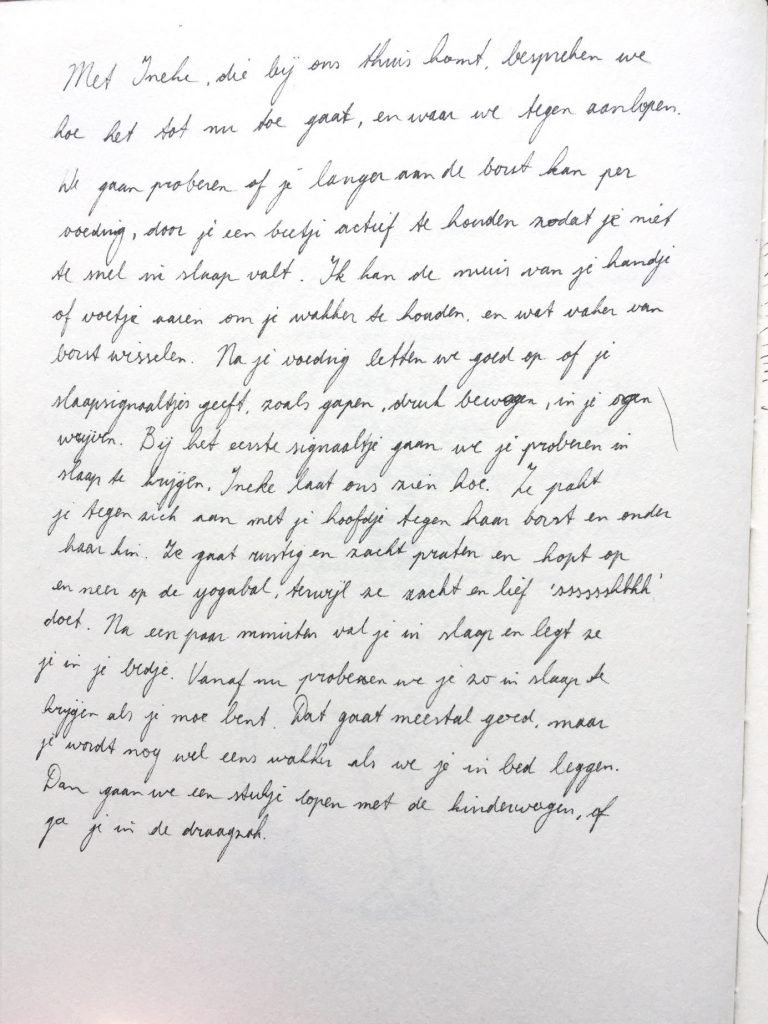 Met Ineke, die bij ons thuis komt, bespreken we
hoe het tot nu toe gaat, en waar we tegen aanlopen.
We gaan proberen of je langer aan de borst kan per
voeding, door je een beetje actief te houden zodat je niet
te snel in slaap valt. Ik kan de muis van je handje
of voetje aaien om je wakker te houden. en wat vaker van
borst wisselen. Na je voeding letten we goed op of je
slaapsignaaltjes geeft, zoals gapen, druk bewegen, in je ogen
wrijven. Bij het eerste signaaltje gaan we je proberen in
slaap te krijgen. Ineke laat ons zien hoe. Ze pakt
je tegen zich aan met je hoofdje tegen haar borst en onder
haar kin. Ze gaat rustig en zacht praten en hopt op
en neer op de yogabal, terwijl ze zacht en lief 'sssssshhhh'
doet. Na een paar minuten val je in slaap en legt ze
je in je bedje. Vanaf nu proberen we je zo in slaap te
krijgen als je moe bent. Dat gaat meestal goed, maar
je wordt nog wel eens wakker als we je in bed leggen.
Dan gaan we een stukje lopen met de kinderwagen, of
ga je in de draagzak.